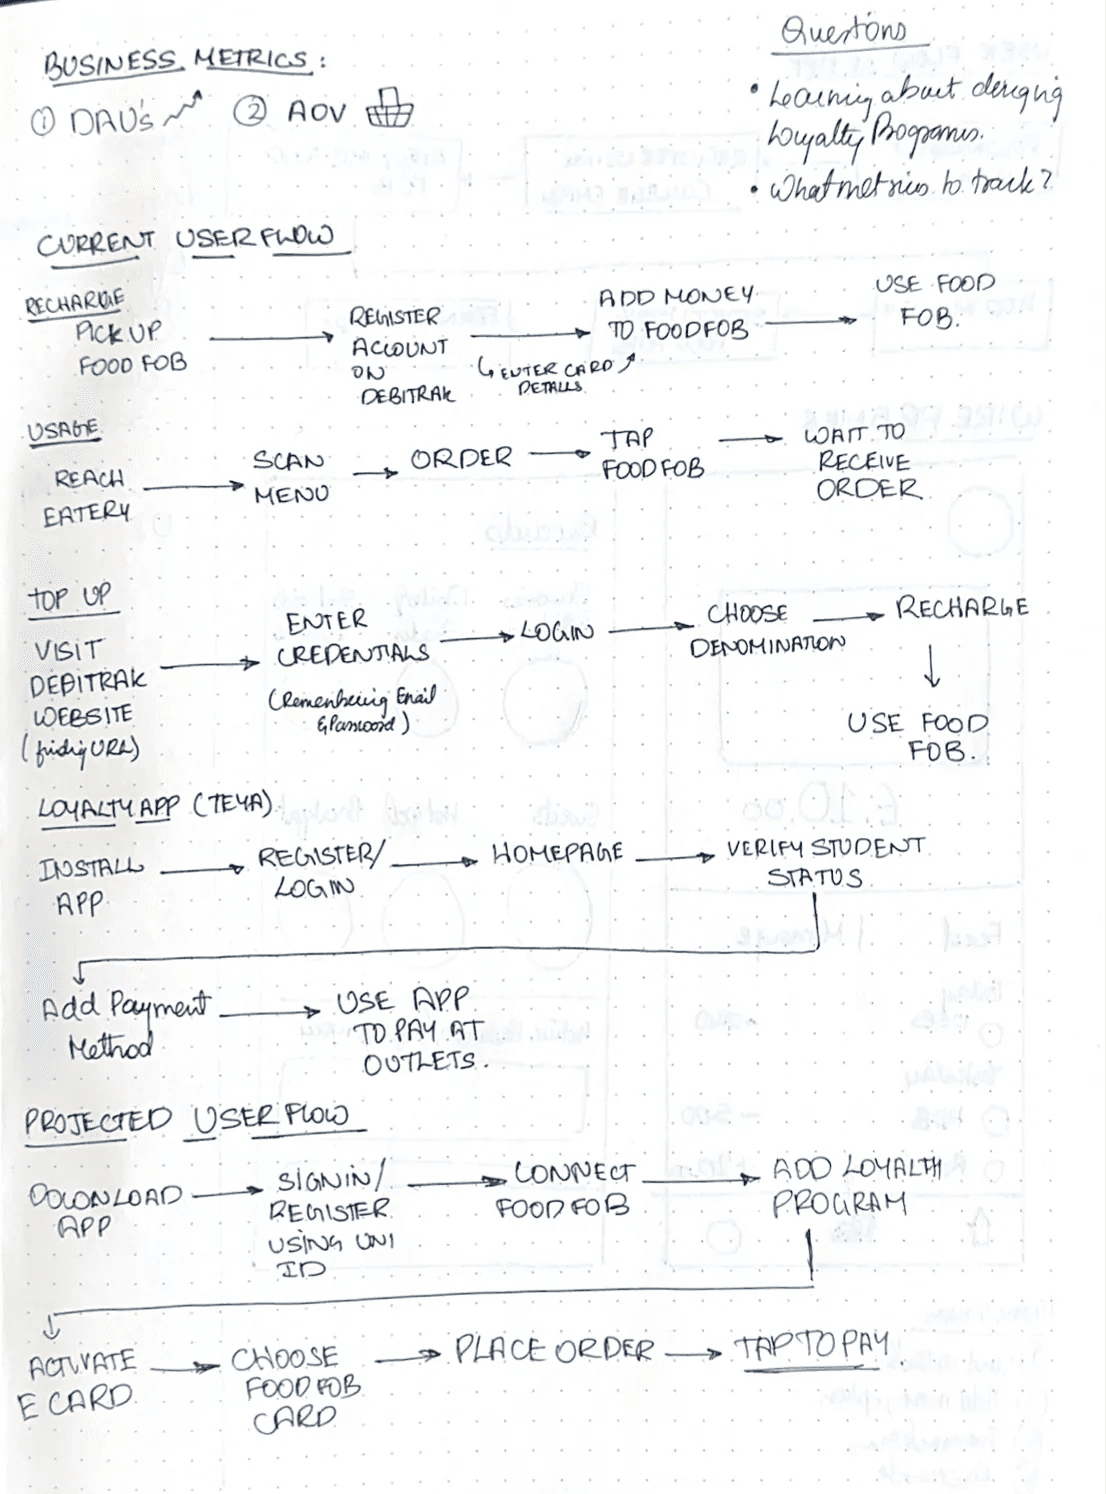 BUSINESS METRICS:
① DAU's ② AOV
Questions
• Learning about designing
Loyalty Programs.
• What metrics to track?
CURRENT USER FLOW
RECHARGE
PICK UP
FOOD FOB
REGISTER
ACCOUNT
ON
DEBITRAK
ADD MONEY
TO FOODFOB
ENTER CARD
DETAILS
USE FOOD
FOB.
USAGE
REACH
EATERY
SCAN
MENU
ORDER
TAP
FOODFOB
WAIT TO
RECEIVE
ORDER
TOP UP
VISIT
DEBITRAK
WEBSITE
(finding URL)
ENTER
CREDENTIALS
(Remembering Email
& Password)
LOGIN
CHOOSE
DENOMINATION
RECHARGE
USE FOOD
FOB.
LOYALTY APP (TEYA)
INSTALL
APP
REGISTER/
LOGIN
HOMEPAGE
VERIFY STUDENT
STATUS
Add Payment
Method
USE APP
TO PAY AT
OUTLETS.
PROJECTED USER FLOW
DOWNLOAD
APP
SIGNIN/
REGISTER
USING UNI
ID
CONNECT
FOODFOB
ADD LOYALTY
PROGRAM
ACTIVATE
E CARD
CHOOSE
FOOD FOB
CARD
PLACE ORDER
TAP TO PAY